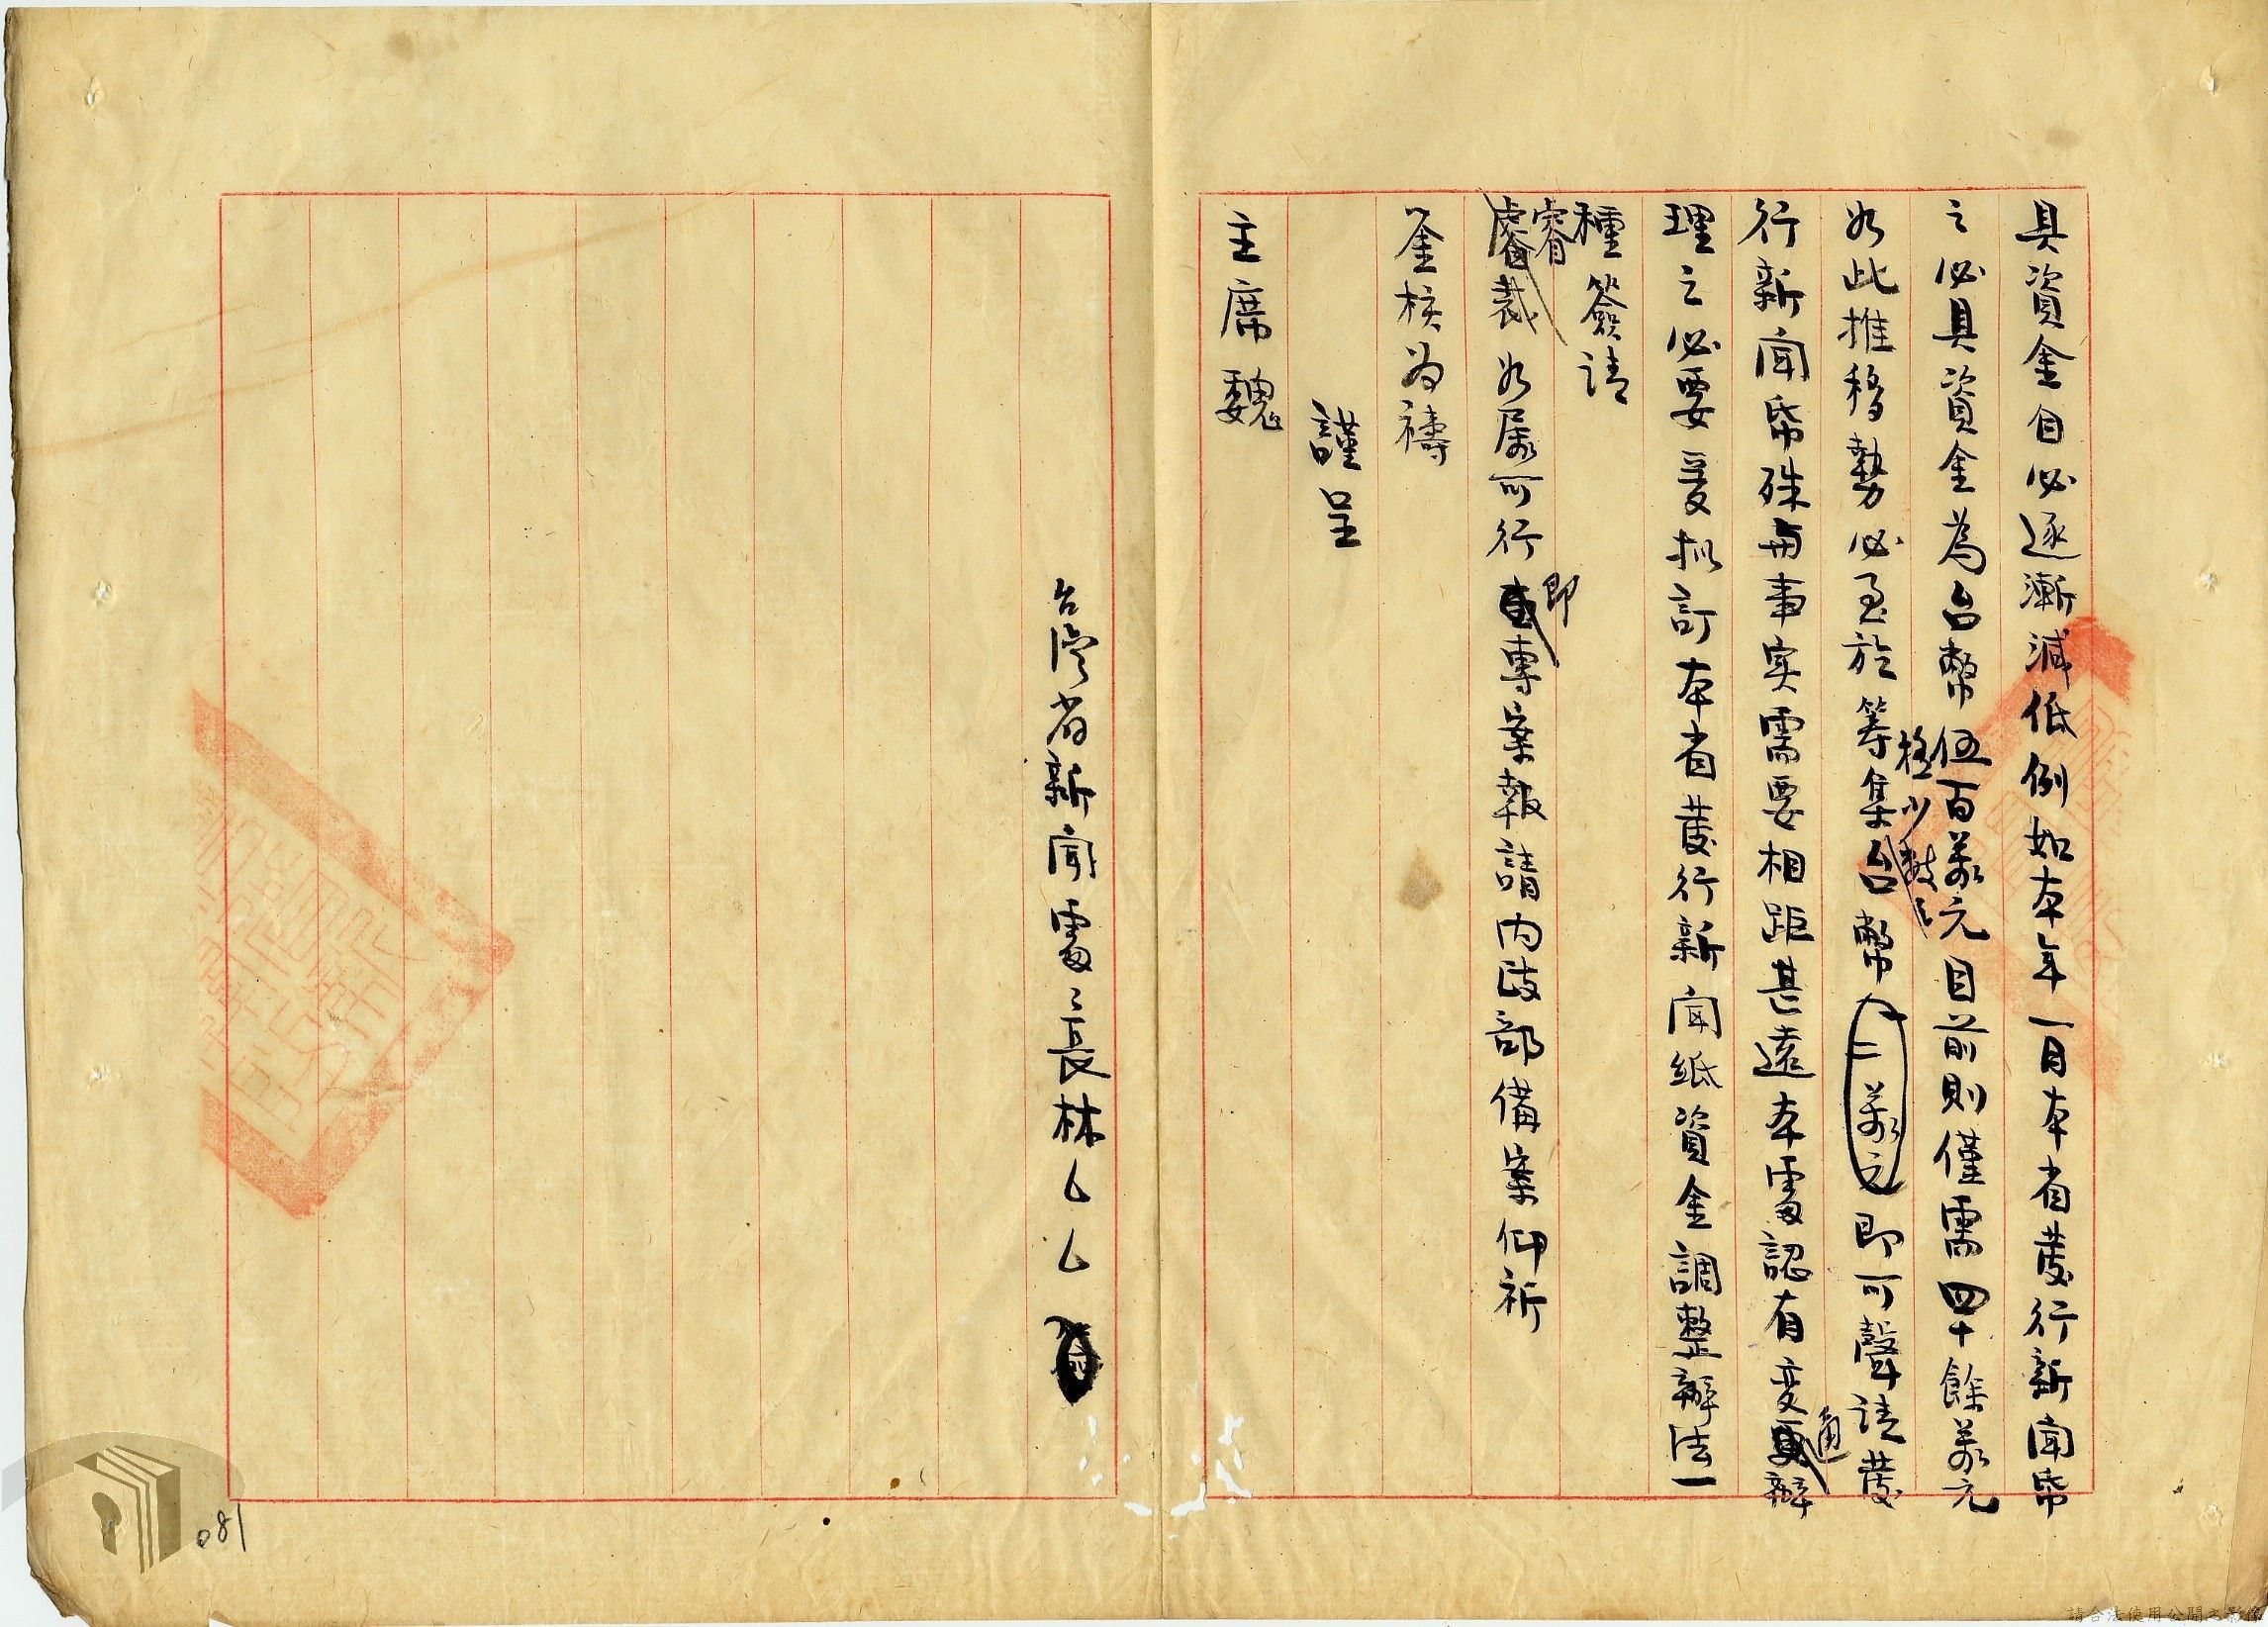 具資金自必逐漸減低例如本年一月本省發行新聞帋
之必具資金為台幣伍百萬元目前則僅需四十餘萬元
如此推移勢必至於籌集台幣一二萬元即可聲請發
極少數之
行新聞帋殊與事实需要相距甚遠本處認有变更辦
通
理之必要爰拟訂本省發行新聞紙資金調整辦法一
種簽請
睿
睿裁如屬可行 專案報請內政部備案仰祈
即
鉴核为禱
謹呈
主席魏
台灣省新聞處〻長林
081
請合法使用公開之影像